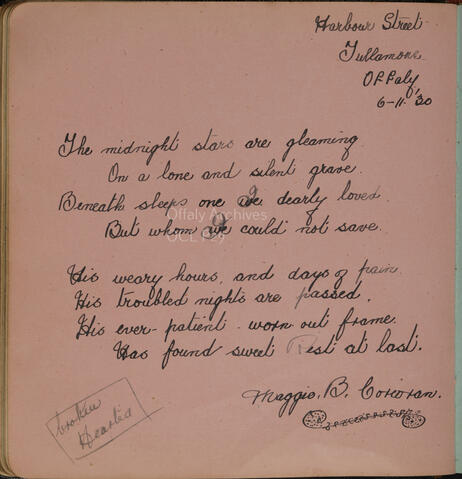 Harbour Street
Tullamore
Offaly
6-11-'30
The midnight stars are gleaming
On a lone and silent grave.
Beneath sleeps one we dearly loved
But whom we could not save.
Offaly Archives
His weary hours, and days of pain.
His troubled nights are passed.
His ever-patient worn out frame.
Has found sweet Rest at last.
Maggie. B. Corcoran.
broken
Hearted